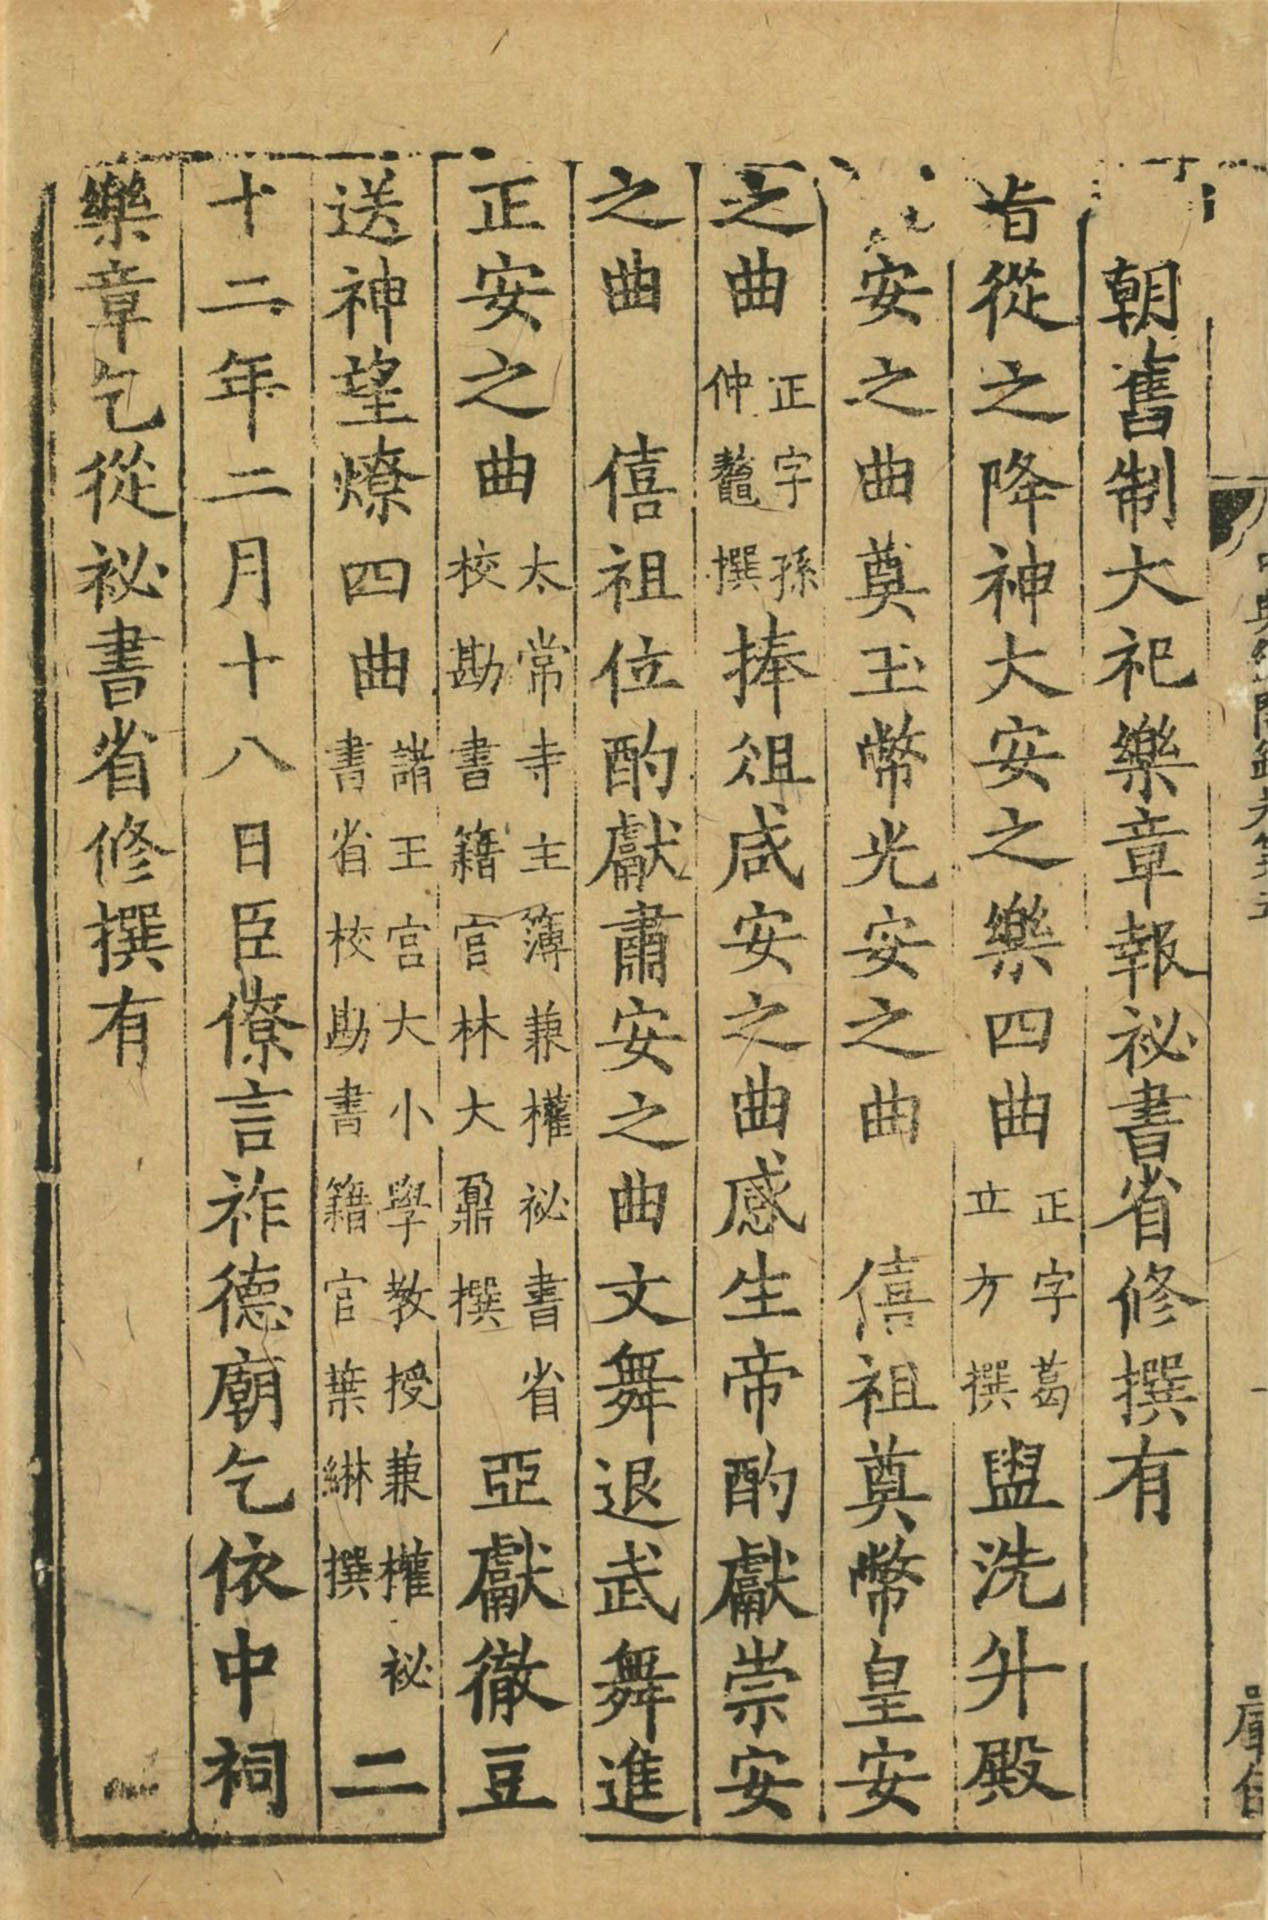 朝舊制大祀樂章報祕書省修撰有
旨從之降神大安之樂四曲正字葛立方撰盥洗升殿
安之曲奠玉幣光安之曲 僖祖奠幣皇安
之曲正字孫仲鼇撰捧俎咸安之曲感生帝酌獻崇安
之曲 僖祖位酌獻肅安之曲文舞退武舞進
正安之曲太常寺主簿兼權祕書省校勘書籍官林大鼐撰亞獻徹豆
送神望燎四曲諸王宮大小學教授兼權祕書省校勘書籍官葉綝撰二
十二年二月十八日臣僚言祚德廟乞依中祠
樂章乞從祕書省修撰有